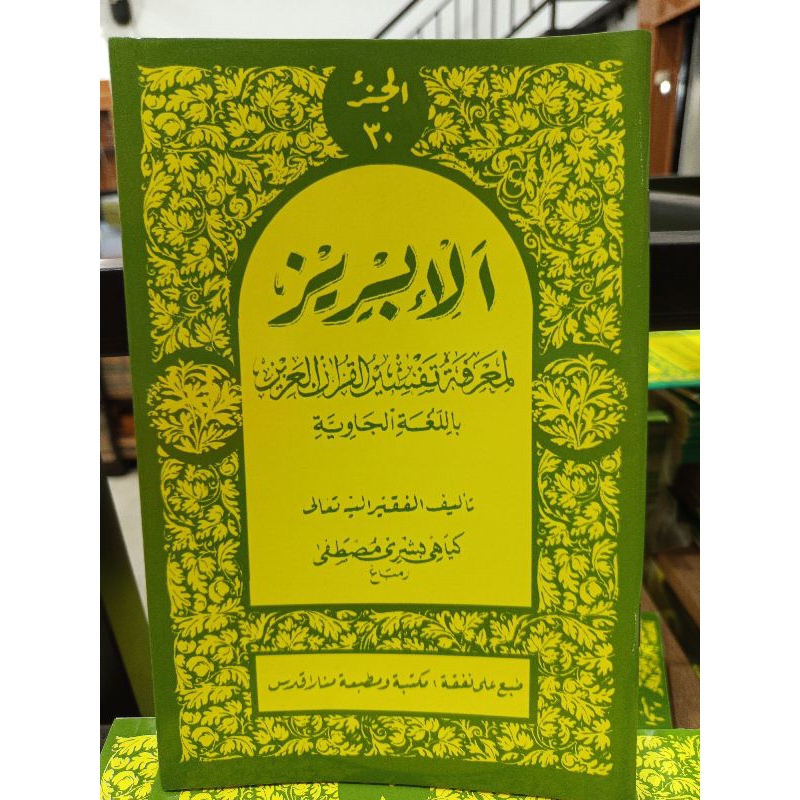 الجزء
٣٠
اَلْإِبْرِيْز
لمَعْرِفَة تَفْسِيْر القُرْآن العَزِيْز
بِاللُّغَةِ الْجَاوِيَّةِ
تأليف الفقير اليه تعالى
كياهي بشري مُصْطَفَى
رمباغ
طبع على نفقة : مكتبة ومطبعة منارا قدس